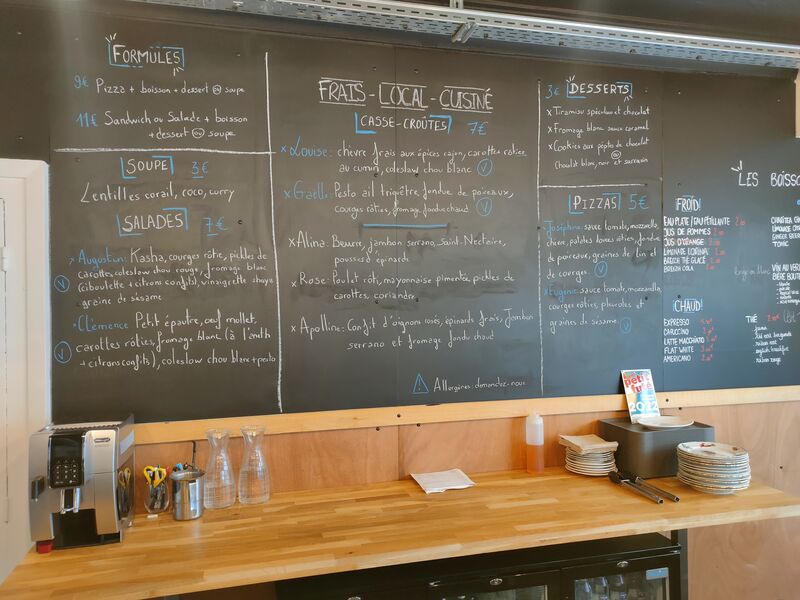 FORMULES
9€ Pizza + boisson + dessert ou soupe
11€ Sandwich ou Salade + boisson
+ dessert ou soupe
SOUPE 3€
Lentilles corail, coco, curry
SALADES 7€
Augustin: Kasha, courges rôties, pickles de
carottes, coleslaw chou rouge, fromage blanc
(ciboulette + citrons confits), vinaigrette shoyu
graines de sésame
V
Clémence Petit épautre, oeuf mollet,
carottes rôties, fromage blanc (à l'aneth
+ citrons confits), coleslow chou blanc + pesto
V
FRAIS - LOCAL - CUISINÉ
CASSE-CROÛTES 7€
x Louise: chèvre frais aux épices cajun, carottes rôties
au cumin, coleslaw chou blanc V
x Gaelle: Pesto ail triquètre, fondue de poireaux,
courges rôties, fromage fondu chaud V
x Alina: Beurre, jambon serrano, Saint-Nectaire,
pousses d'épinards
x Rose: Poulet rôti, mayonnaise pimentée, pickles de
carottes, coriandre
x Apolline: Confit d'oignons rosés, épinards frais, Jambon
serrano et fromage fondu chaud
Allergènes: demandez-nous
3€ DESSERTS
x Tiramisu spéculoos et chocolat
x Fromage blanc sauce caramel
x Cookies aux pépites de chocolat
ou
Chocolat blanc, noir et sarrasin
PIZZAS 5€
Joséphine: sauce tomate, mozzarella,
chèvre, patates douces rôties, fondue
de poireaux, graines de lin et
de courges. V
Eugénie: sauce tomate, mozzarella,
courges rôties, pleurotes et
graines de sésame. V
LES BOISSO
FROID
EAU PLATE / EAU PÉTILLANTE
JUS DE POMMES
JUS D'ORANGE
LIMONADE LORINA
BREIZH THÉ GLACÉ
BREIZH COLA
GINGER BEER
TONIC
VIN AU VER
BIÈRE BOUTE
CHAUD
EXPRESSO
CAPUCCINO
LATTE MACCHIATO
FLAT WHITE
AMERICANO
THÉ
Petit futé
2022